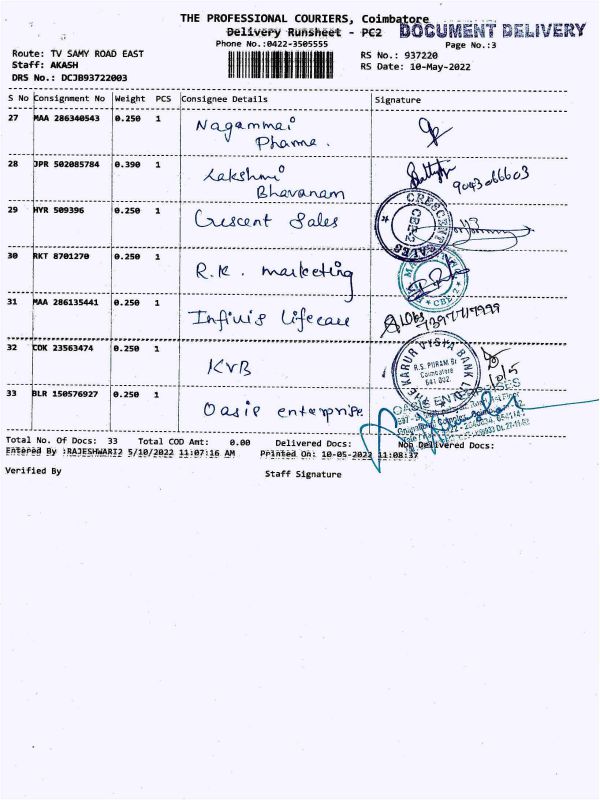 THE PROFESSIONAL COURIERS, Coimbatore
Delivery Runsheet - PC2
DOCUMENT DELIVERY
Phone No.:0422-3505555
Page No.:3
Route: TV SAMY ROAD EAST
RS No.: 937220
Staff: AKASH
RS Date: 10-May-2022
DRS No.: DCJB93722003
S No Consignment No Weight PCS Consignee Details Signature
27 MAA 286340543 0.250 1 Nagammai Pharma.
28 JPR 502085784 0.390 1 Lakshmi Bhavanam
29 HYR 509396 0.250 1 Crescent Sales
CRESCENT SALES CBE-2
30 RKT 8701270 0.250 1 R.K. marketing
CBE-2
31 MAA 286135441 0.250 1 Infinis lifecare
32 COK 23563474 0.250 1 KVB
THE KARUR VYSYA BANK LTD
R.S. PURAM Br
Coimbatore
641 002.
10/5
33 BLR 150576927 0.250 1 Oasis enterprise
OASIS ENTERPRISES
Total No. Of Docs: 33 Total COD Amt: 0.00 Delivered Docs: Non Delivered Docs:
Entered By :RAJESHWARI2 5/10/2022 11:07:16 AM Printed On: 10-05-2022 11:08:37
Verified By
Staff Signature